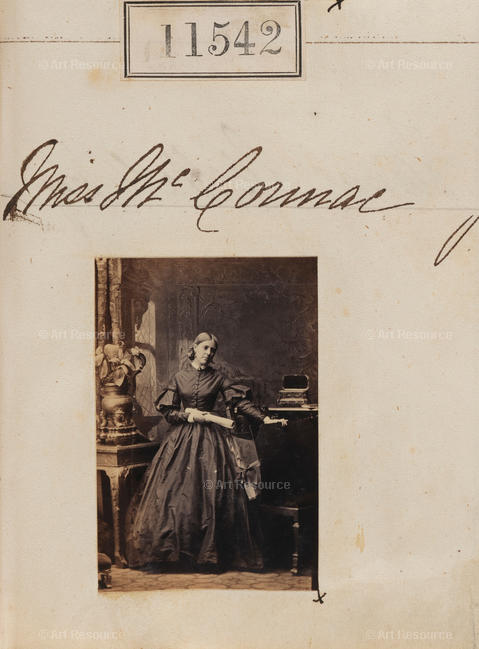 11542
© Art Resource © Art Resource
Miss McCormac
© Art Resource
© Art Resource © Art Resource
© Art Resource
© Art Resource © Art Resource